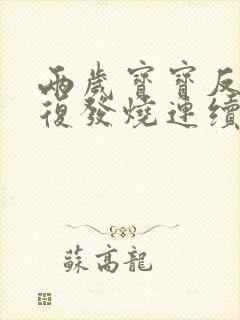 兩歲寶寶反
復發燒連續
蘇高龍